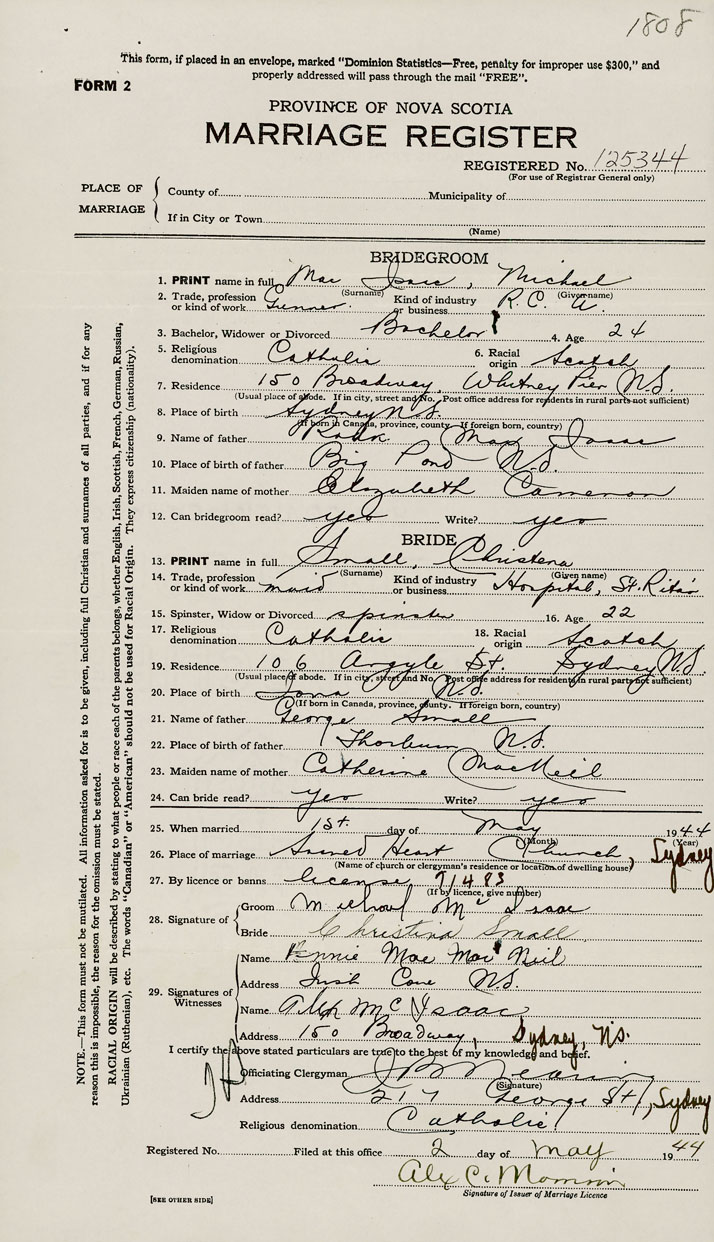 1808
This form, if placed in an envelope, marked "Dominion Statistics—Free, penalty for improper use $300," and
properly addressed will pass through the mail "FREE".
FORM 2
PROVINCE OF NOVA SCOTIA
MARRIAGE REGISTER
REGISTERED No. 125344
(For use of Registrar General only)
PLACE OF MARRIAGE
County of Municipality of
If in City or Town
(Name)
BRIDEGROOM
1. PRINT name in full Mac Isaac, Michael
(Surname) (Given name)
2. Trade, profession or kind of work Gunner. Kind of industry or business R.C. A.
3. Bachelor, Widower or Divorced Bachelor 4. Age 24
5. Religious denomination Catholic 6. Racial origin Scotch
7. Residence 150 Broadway, Whitney Pier N.S.
(Usual place of abode. If in city, street and No. Post office address for residents in rural parts not sufficient)
8. Place of birth Sydney N.S.
(If born in Canada, province, county. If foreign born, country)
9. Name of father Mac Isaac
10. Place of birth of father Big Pond N.S.
11. Maiden name of mother Elizabeth Cameron
12. Can bridegroom read? yes Write? yes
BRIDE
13. PRINT name in full Small, Christena
(Surname) (Given name)
14. Trade, profession or kind of work maid Kind of industry or business Hospital, St. Rita's
15. Spinster, Widow or Divorced spinster 16. Age 22
17. Religious denomination Catholic 18. Racial origin Scotch
19. Residence 106 Argyle St. Sydney N.S.
(Usual place of abode. If in city, street and No. Post office address for residents in rural parts not sufficient)
20. Place of birth Iona N.S.
(If born in Canada, province, county. If foreign born, country)
21. Name of father George Small
22. Place of birth of father Thorburn N.S.
23. Maiden name of mother Catherine MacNeil
24. Can bride read? yes Write? yes
25. When married 1st. day of May 1944
(Month) (Year)
26. Place of marriage Sacred Heart Church, Sydney
(Name of church or clergyman's residence or location of dwelling house)
27. By licence or banns license, 91483
(If by licence, give number)
28. Signature of
Groom Michael Mc Isaac
Bride Christina Small
29. Signatures of Witnesses
Name Mae Mac Neil
Address Irish Cove N.S.
Name Alex McIsaac
Address 150 Broadway, Sydney, N.S.
I certify the above stated particulars are true to the best of my knowledge and belief.
Officiating Clergyman
(Signature)
Address 217 George St, Sydney
Religious denomination Catholic
Registered No. Filed at this office 2 day of May 1944
Alex C.
Signature of Issuer of Marriage Licence
[SEE OTHER SIDE]
NOTE.—This form must not be mutilated. All information asked for is to be given, including full Christian and surnames of all parties, and if for any
reason this is impossible, the reason for the omission must be stated.
RACIAL ORIGIN will be described by stating to what people or race each of the parents belongs, whether English, Irish, Scottish, French, German, Russian,
Ukrainian (Ruthenian), etc. The words "Canadian" or "American" should not be used for Racial Origin. They express citizenship (nationality).